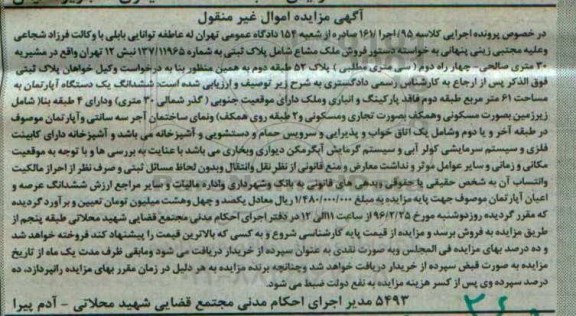 آگهی مزایده اموال غیر منقول
در خصوص پرونده اجرایی کلاسه ۹۵/اجرا /۱۶۱ صادره از شعبه ۱۵۴ دادگاه عمومی تهران له عاطفه توانایی بابلی با وکالت فرزاد شجاعی
وعلیه مجتبی زینی پنهانی به خواسته دستور فروش ملک مشاع شامل پلاک ثبتی به شماره ۱۳۷/۱۱۹۶۵ نبش ۱۲ تهران واقع در مشیریه
۳۰ متری صالحی - چهار راه دوم ( سی متری مطلبی ) پلاک ۵۲ طبقه دوم به همین منظور بنا به درخواست وکیل خواهان پلاک ثبتی
فوق الذکر پس از ارجاع به کارشناس رسمی دادگستری به شرح زیر توصیف و ارزیابی شده است: ششدانگ یک دستگاه آپارتمان به
مساحت ۶۱ متر مربع طبقه دوم فاقد پارکینگ و انباری وملک دارای موقعیت جنوبی ( گذر شمالی ۳۰ متری) ودارای ۴ طبقه بنا( شامل
زیرزمین بصورت مسکونی وهمکف بصورت تجاری ومسکونی و۲ طبقه روی همکف) ونمای ساختمان آجر سه سانتی وآپارتمان موصوف
در طبقه آخر و یا دوم وشامل یک اتاق خواب و پذیرایی و سرویس حمام و دستشویی و آشپزخانه می باشد و آشپزخانه دارای کابینت
فلزی و سیستم سرمایشی کولر آبی و سیستم گرمایش آبگرمکن دیواری وبخاری می باشد با عنایت به بررسی ها و با توجه به موقعیت
مکانی و زمانی و سایر عوامل موثر و نداشت معارض و منع قانونی از نظر نقل وانتقال وبدون لحاظ مسائل ثبتی و صرف نظر از احراز مالکیت
وانتساب آن به شخص حقیقی یا حقوقی وبدهی های قانونی به بانک وشهرداری واداره مالیات و سایر مراجع ارزش ششدانگ عرصه و
اعیان آپارتمان موصوف جهت پایه مزایده به مبلغ ۱/۴۸۰/۰۰۰/۰۰۰ ریال معادل یکصد و چهل وهشت میلیون تومان تعیین و برآورد گردیده
که مقرر گردیده روزدوشنبه مورخ ۹۶/۲/۲۵ از ساعت ۱۱الی ۱۲ در دفتر اجرای احکام مدنی مجتمع قضایی شهید محلاتی طبقه پنجم از
طریق مزایده به فروش برسد و مزایده از قیمت پایه کارشناسی شروع و به کسی که بالاترین قیمت را پیشنهاد کند فروخته خواهد شد
و ده درصد بهای مزایده فی المجلس وبه صورت نقدی به عنوان سپرده از خریدار دریافت می شود ومابقی ظرف مدت یک ماه از تاریخ
مزایده به صورت قبض سپرده از خریدار دریافت خواهد شد وچنانچه برنده مزایده به هر دلیل در زمان مقرر بهای مزایده رانپردازد، ده
درصد سپرده وی پس از کسر هزینه مزایده به نفع دولت ضبط می شود.
۵۴۹۳ مدیر اجرای احکام مدنی مجتمع قضایی شهید محلاتی - آدم پیرا